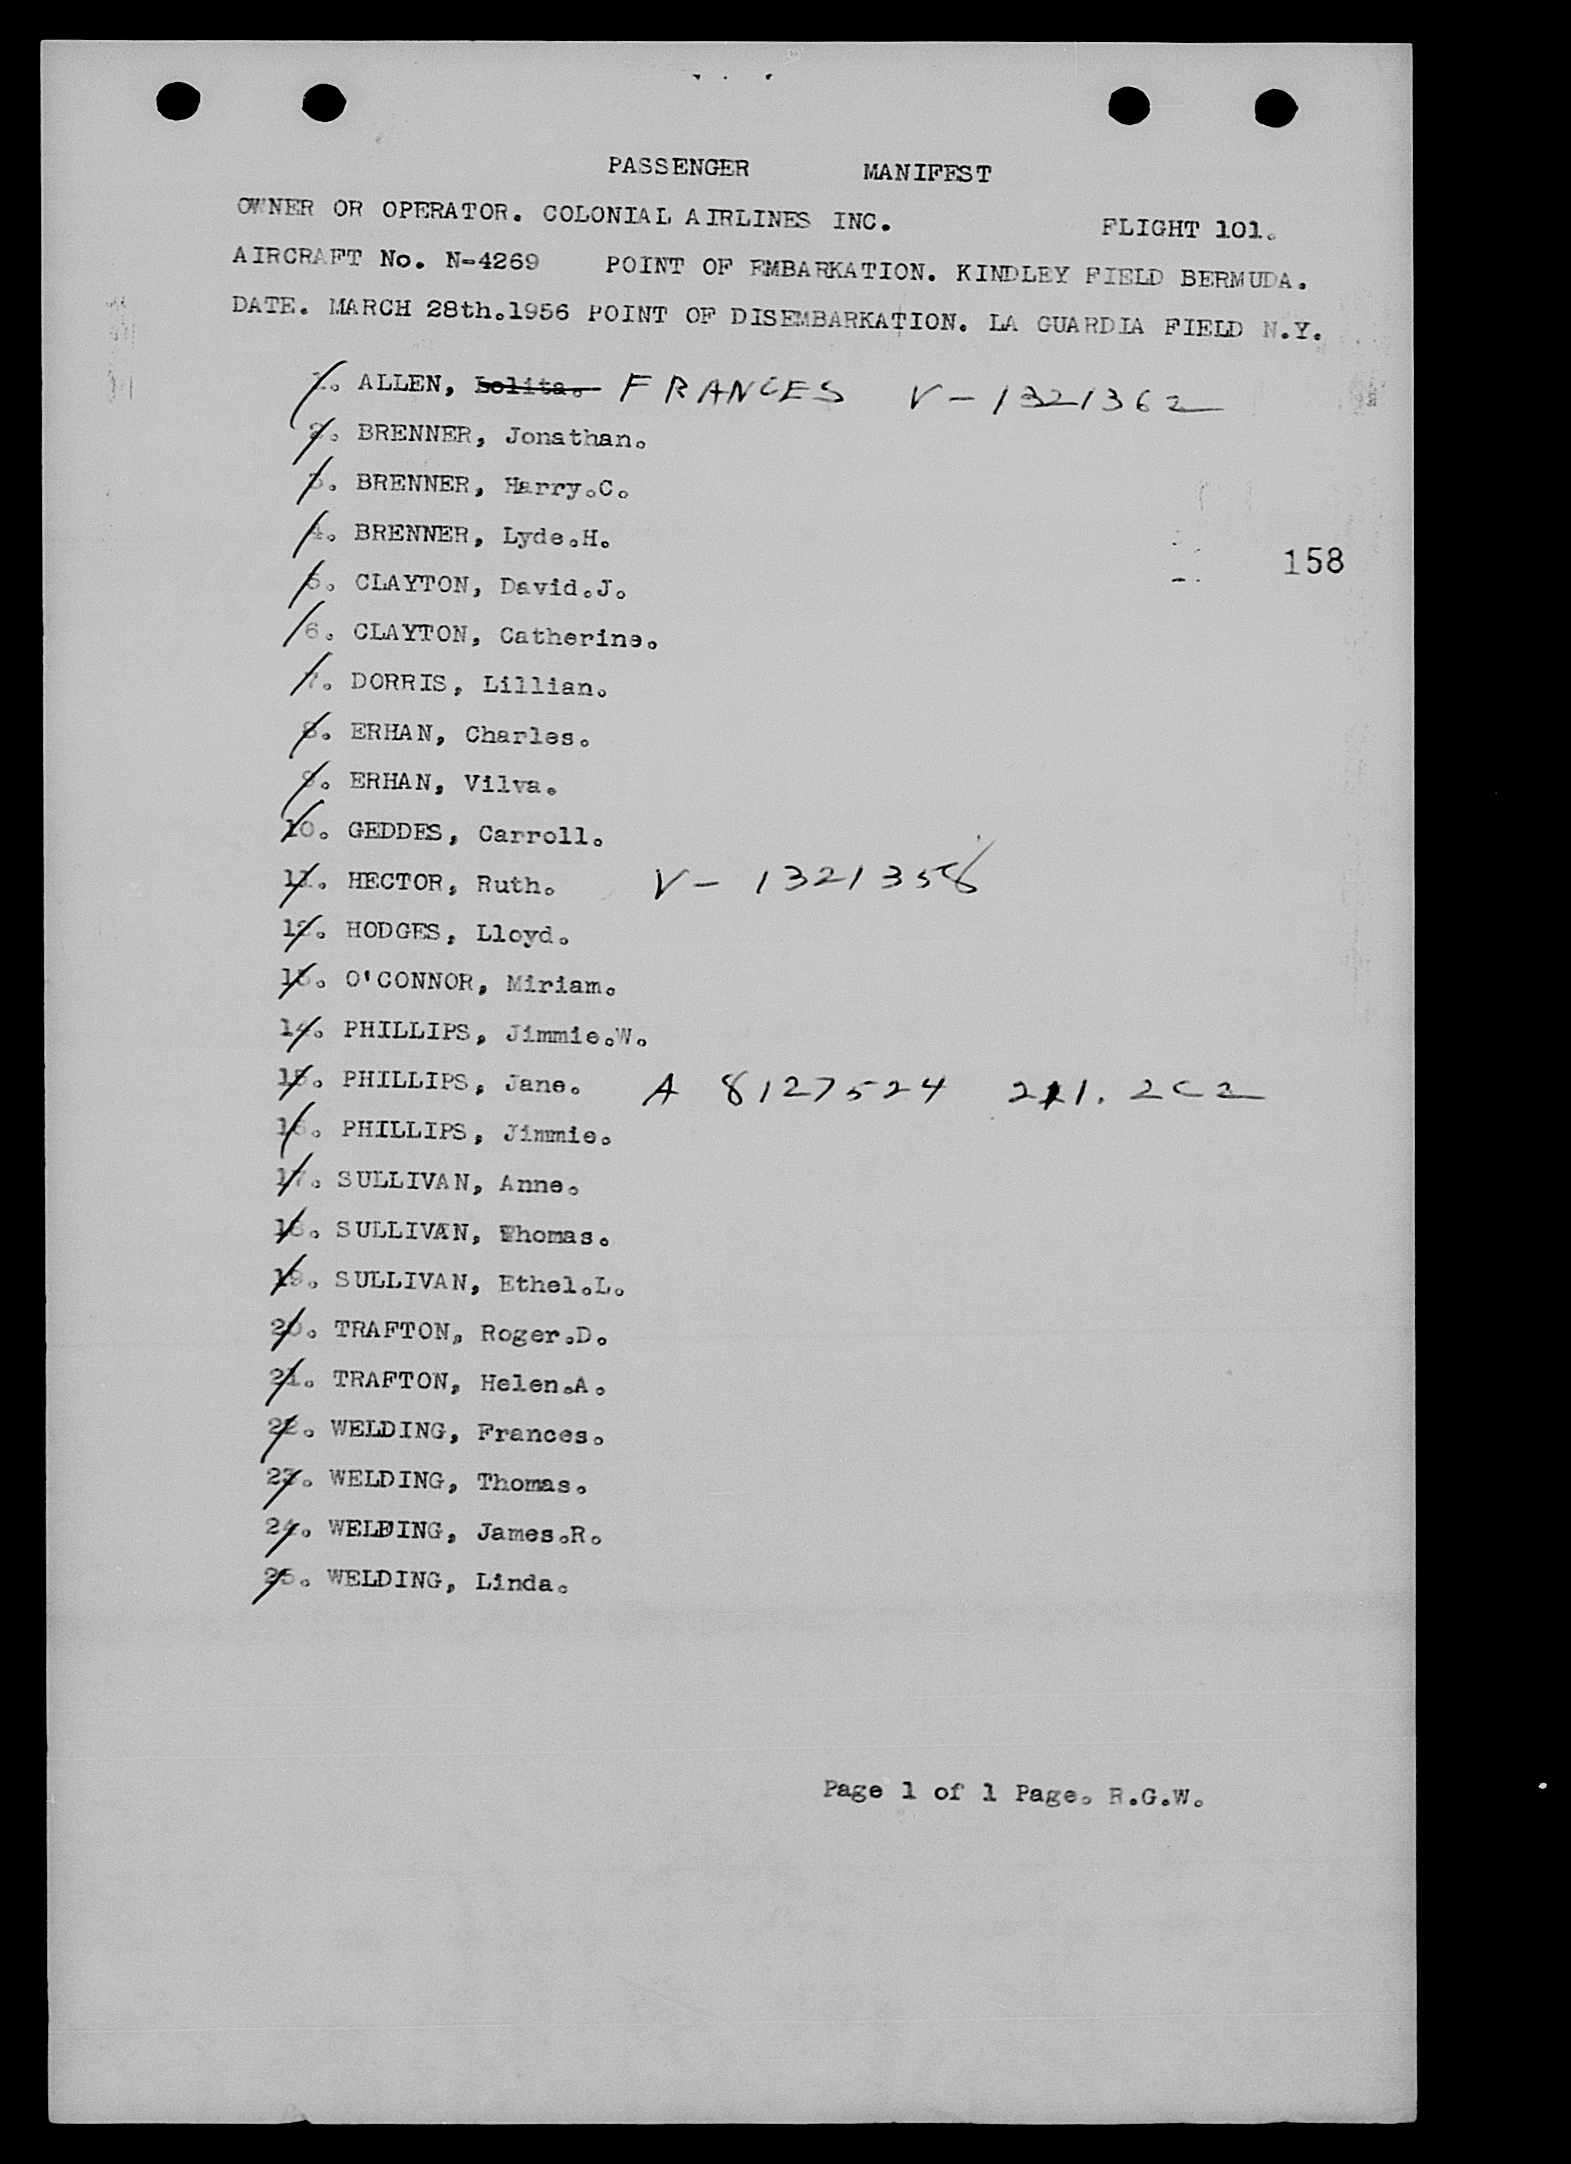 PASSENGER MANIFEST
OWNER OR OPERATOR. COLONIAL AIRLINES INC. FLIGHT 101.
AIRCRAFT No. N-4269 POINT OF EMBARKATION. KINDLEY FIELD BERMUDA.
DATE. MARCH 28th.1956 POINT OF DISEMBARKATION. LA GUARDIA FIELD N.Y.
1. ALLEN, Lolita. FRANCES V-1321362
2. BRENNER, Jonathan.
3. BRENNER, Harry.C.
4. BRENNER, Lyde.H.
158
5. CLAYTON, David.J.
6. CLAYTON, Catherine.
7. DORRIS, Lillian.
8. ERHAN, Charles.
9. ERHAN, Vilva.
10. GEDDES, Carroll.
11. HECTOR, Ruth. V-1321358
12. HODGES, Lloyd.
13. O'CONNOR, Miriam.
14. PHILLIPS, Jimmie.W.
15. PHILLIPS, Jane. A 8127524 211.2C2
16. PHILLIPS, Jimmie.
17. SULLIVAN, Anne.
18. SULLIVAN, Thomas.
19. SULLIVAN, Ethel.L.
20. TRAFTON, Roger.D.
21. TRAFTON, Helen.A.
22. WELDING, Frances.
23. WELDING, Thomas.
24. WELDING, James.R.
25. WELDING, Linda.
Page 1 of 1 Page. R.G.W.